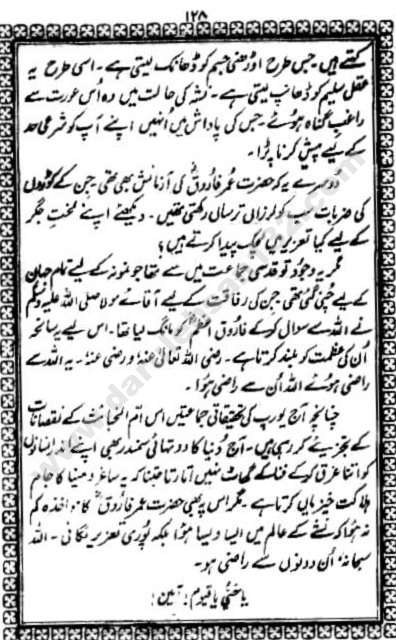 ١٢٨
کہتے ہیں جس طرح اوڑھنی جسم کو ڈھانک لیتی ہے۔ اسی طرح یہ
عقلِ سلیم کو ڈھانپ لیتی ہے۔ نشہ کی حالت میں وہ اُس عورت سے
راغبِ گناہ ہوئے جس کی پاداش میں اُنہیں اپنے آپ کو شرعی حد
کے لیے پیش کرنا پڑا۔
دوسرے یہ کہ حضرت عمر فاروقؓ کی آزمائش بھی تھی جن کے کوڑوں
کی ضربات سب کو لرزاں ترساں رکھتی تھیں۔ دیکھئے اپنے لختِ جگر
کے لیے کیا تعزیر میں لچک پیدا کرتے ہیں؟
مگر یہ وجود تو قدسی جماعت میں سے تھا جو نمونہ کے لیے تمام جہان
کے لیے چنی گئی تھی جن کی رفاقت کے لیے آقائے مولا صلی اللہ علیہ وسلم
نے اللہ سے سوال کر کے فاروق اعظمؓ کو مانگ لیا تھا۔ اس لیے یہ سانحہ
اُن کی عظمت کو بلند کرتا ہے۔ رضی اللہ تعالیٰ عنہٗ و رضی عنہٗ۔ یہ اللہ سے
راضی ہوئے اللہ اُن سے راضی ہوا۔
چنانچہ آج یورپ کی تحقیقاتی جماعتیں اس اُم الخبائث کے نقصانات
کے تجزیے کر رہی ہیں۔ آج دُنیا کا دو تہائی سمندر بھی اپنے اندر انسانوں
کو اتنا غرق کر کے فنا کے گھاٹ نہیں اُتارتا جتنا کہ یہ ساغر و مینا کا جام
ہلاکت خیزیاں کرتا ہے۔ مگر اس پر بھی حضرت عمر فاروقؓ کا مواخذہ کم
نہ ہوا کہ نشے کے عالم میں ایسا ویسا ہوا بلکہ پُوری تعزیر لگائی۔ اللہ
سبحانہٗ اُن دونوں سے راضی ہو۔
یا حیُّ یا قیوم! آمین!
www.darulehsan132.com